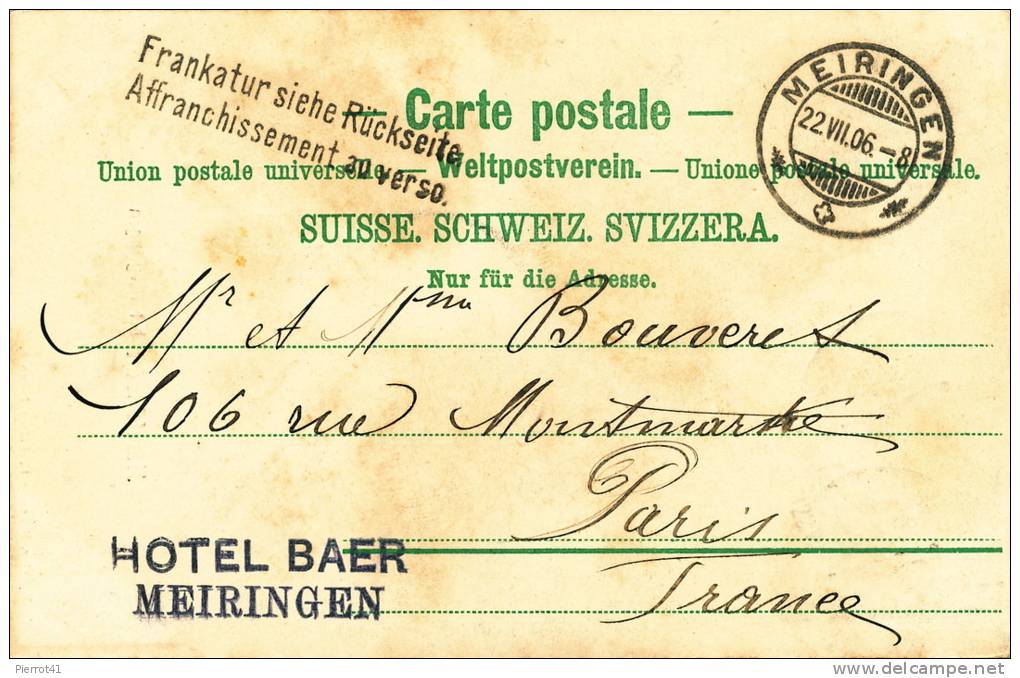 Frankatur siehe Rückseite
Affranchissement au verso.
— Carte postale —
Union postale universelle. — Weltpostverein. — Unione postale universale.
SUISSE. SCHWEIZ. SVIZZERA.
Nur für die Adresse.
MEIRINGEN
22.VII.06.–8
Mr et Mme Bouveret
106 rue Montmartre
Paris
France
HOTEL BAER
MEIRINGEN
Pierrot41
delcampe.net